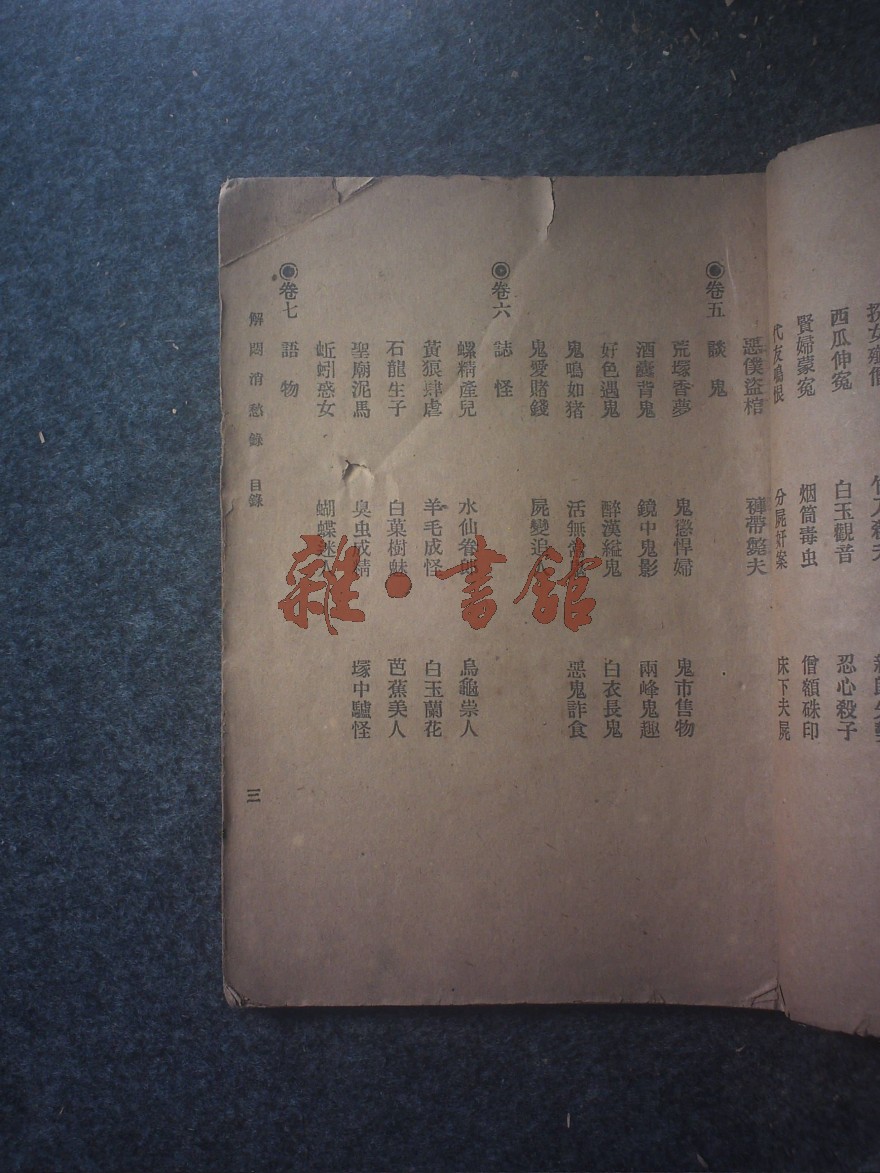 西瓜伸寃　白玉觀音　忍心殺子
賢婦蒙寃　烟筒毒虫　僧額硃印
代友鳴恨　分屍奸案　床下夫屍
惡僕盜棺　褲帶斃夫
◉卷五　談鬼
荒塚香夢　鬼懲悍婦　鬼市售物
酒囊背鬼　鏡中鬼影　兩峰鬼趣
好色遇鬼　醉漢縊鬼　白衣長鬼
鬼鳴如猪　活無常鬼　惡鬼詐食
鬼愛賭錢　屍變追人
◉卷六　誌怪
螺精產兒　水仙眷郎　烏龜祟人
黃狼肆虐　羊毛成怪　白玉蘭花
石龍生子　白菓樹魅　芭蕉美人
聖廟泥馬　臭虫成精　塚中驢怪
蚯蚓惑女　蝴蝶迷人
◉卷七　語物
解悶消愁錄　目錄　三
雜·書館